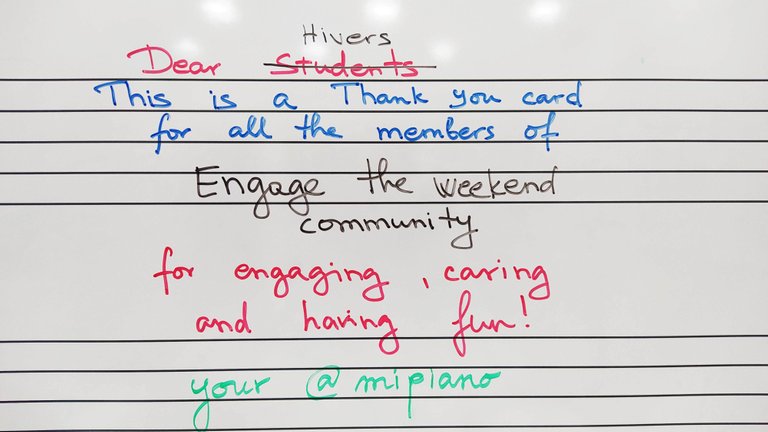 Hivers
Dear Students
This is a Thank you card
for all the members of
Engage the weekend
community
for engaging, caring
and having fun!
your @mipiano